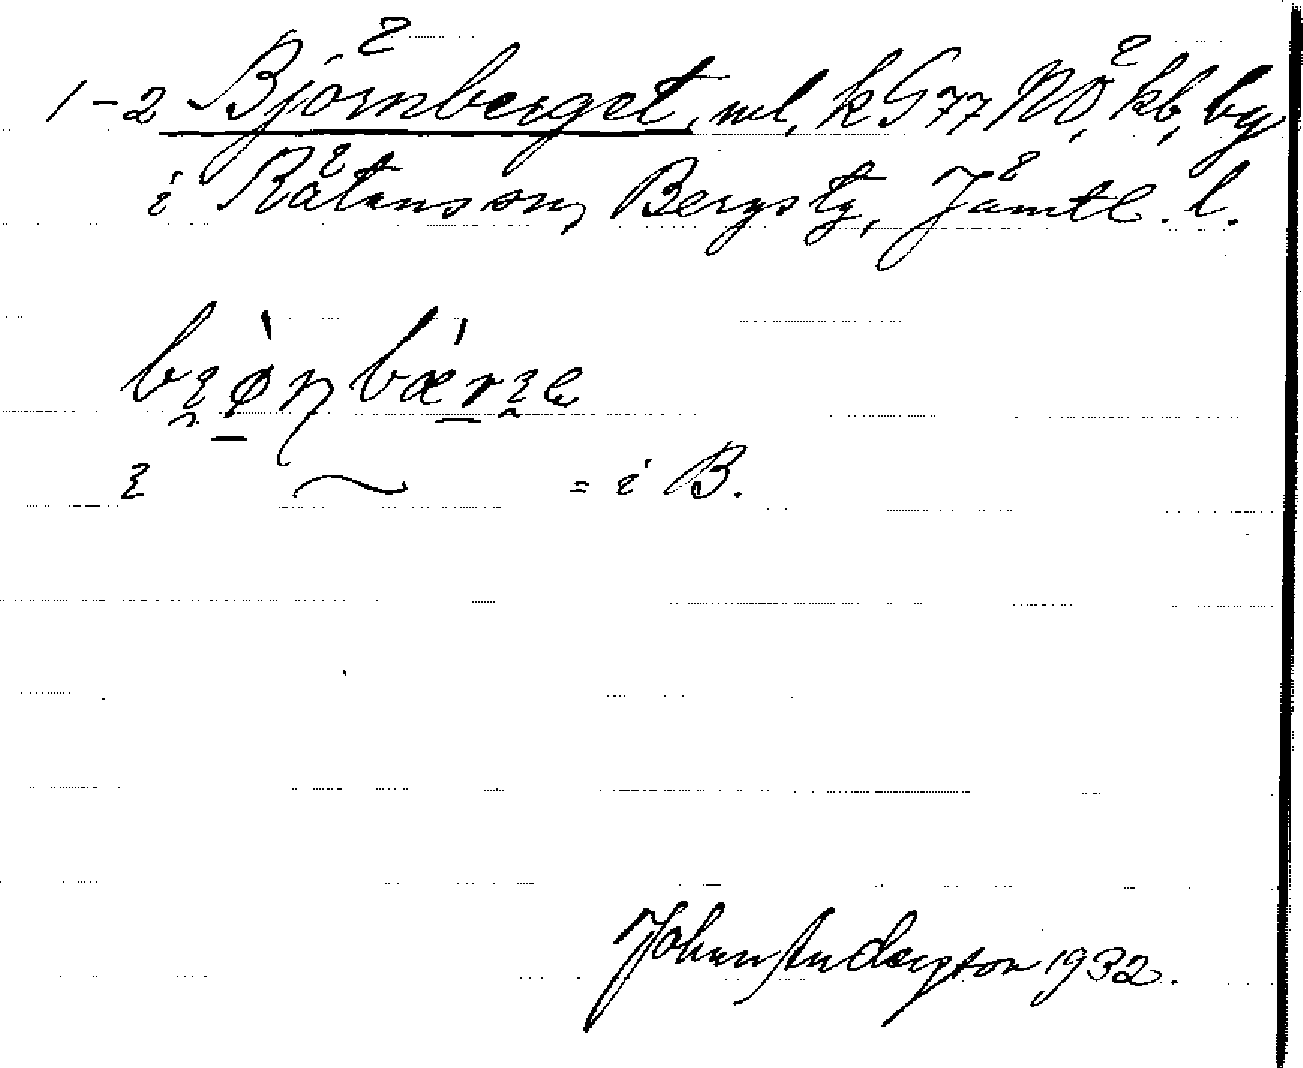 1-2 Björnberget, ml, k G77 NÖ, kb, by
i Rätans sn, Bergs tg, Jämtl. l.
= i B.
Johan Anderson 1932.